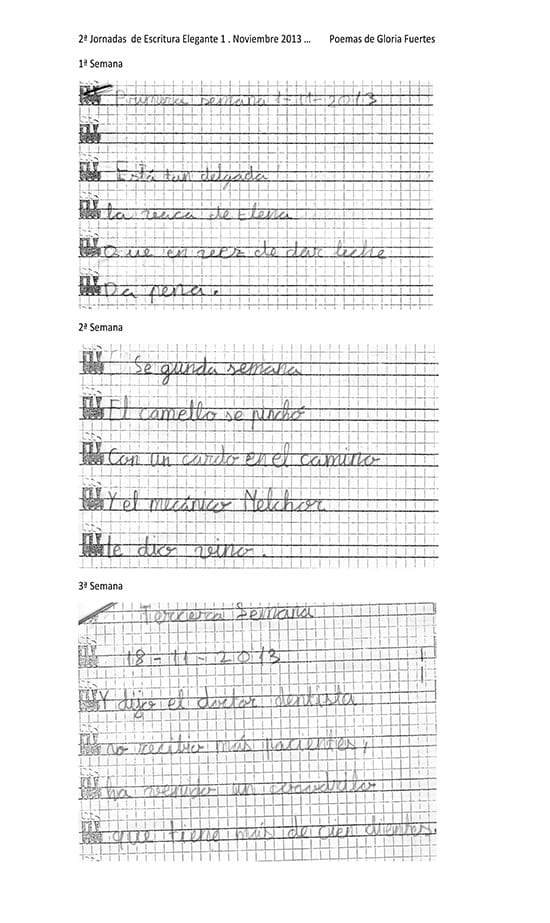 2ª Jornadas de Escritura Elegante 1 . Noviembre 2013 ... Poemas de Gloria Fuertes
1ª Semana
Primera semana 1-11-2013
Está tan delgada
la vaca de Elena
Que en vez de dar leche
Da pena.
2ª Semana
Segunda semana
El camello se pinchó
Con un cardo en el camino
Y el mecánico Melchor
le dio vino.
3ª Semana
Tercera Semana
18-11-2013
Y dijo el doctor dentista
no recibo más pacientes,
ha venido un cocodrilo
que tiene más de cien dientes.